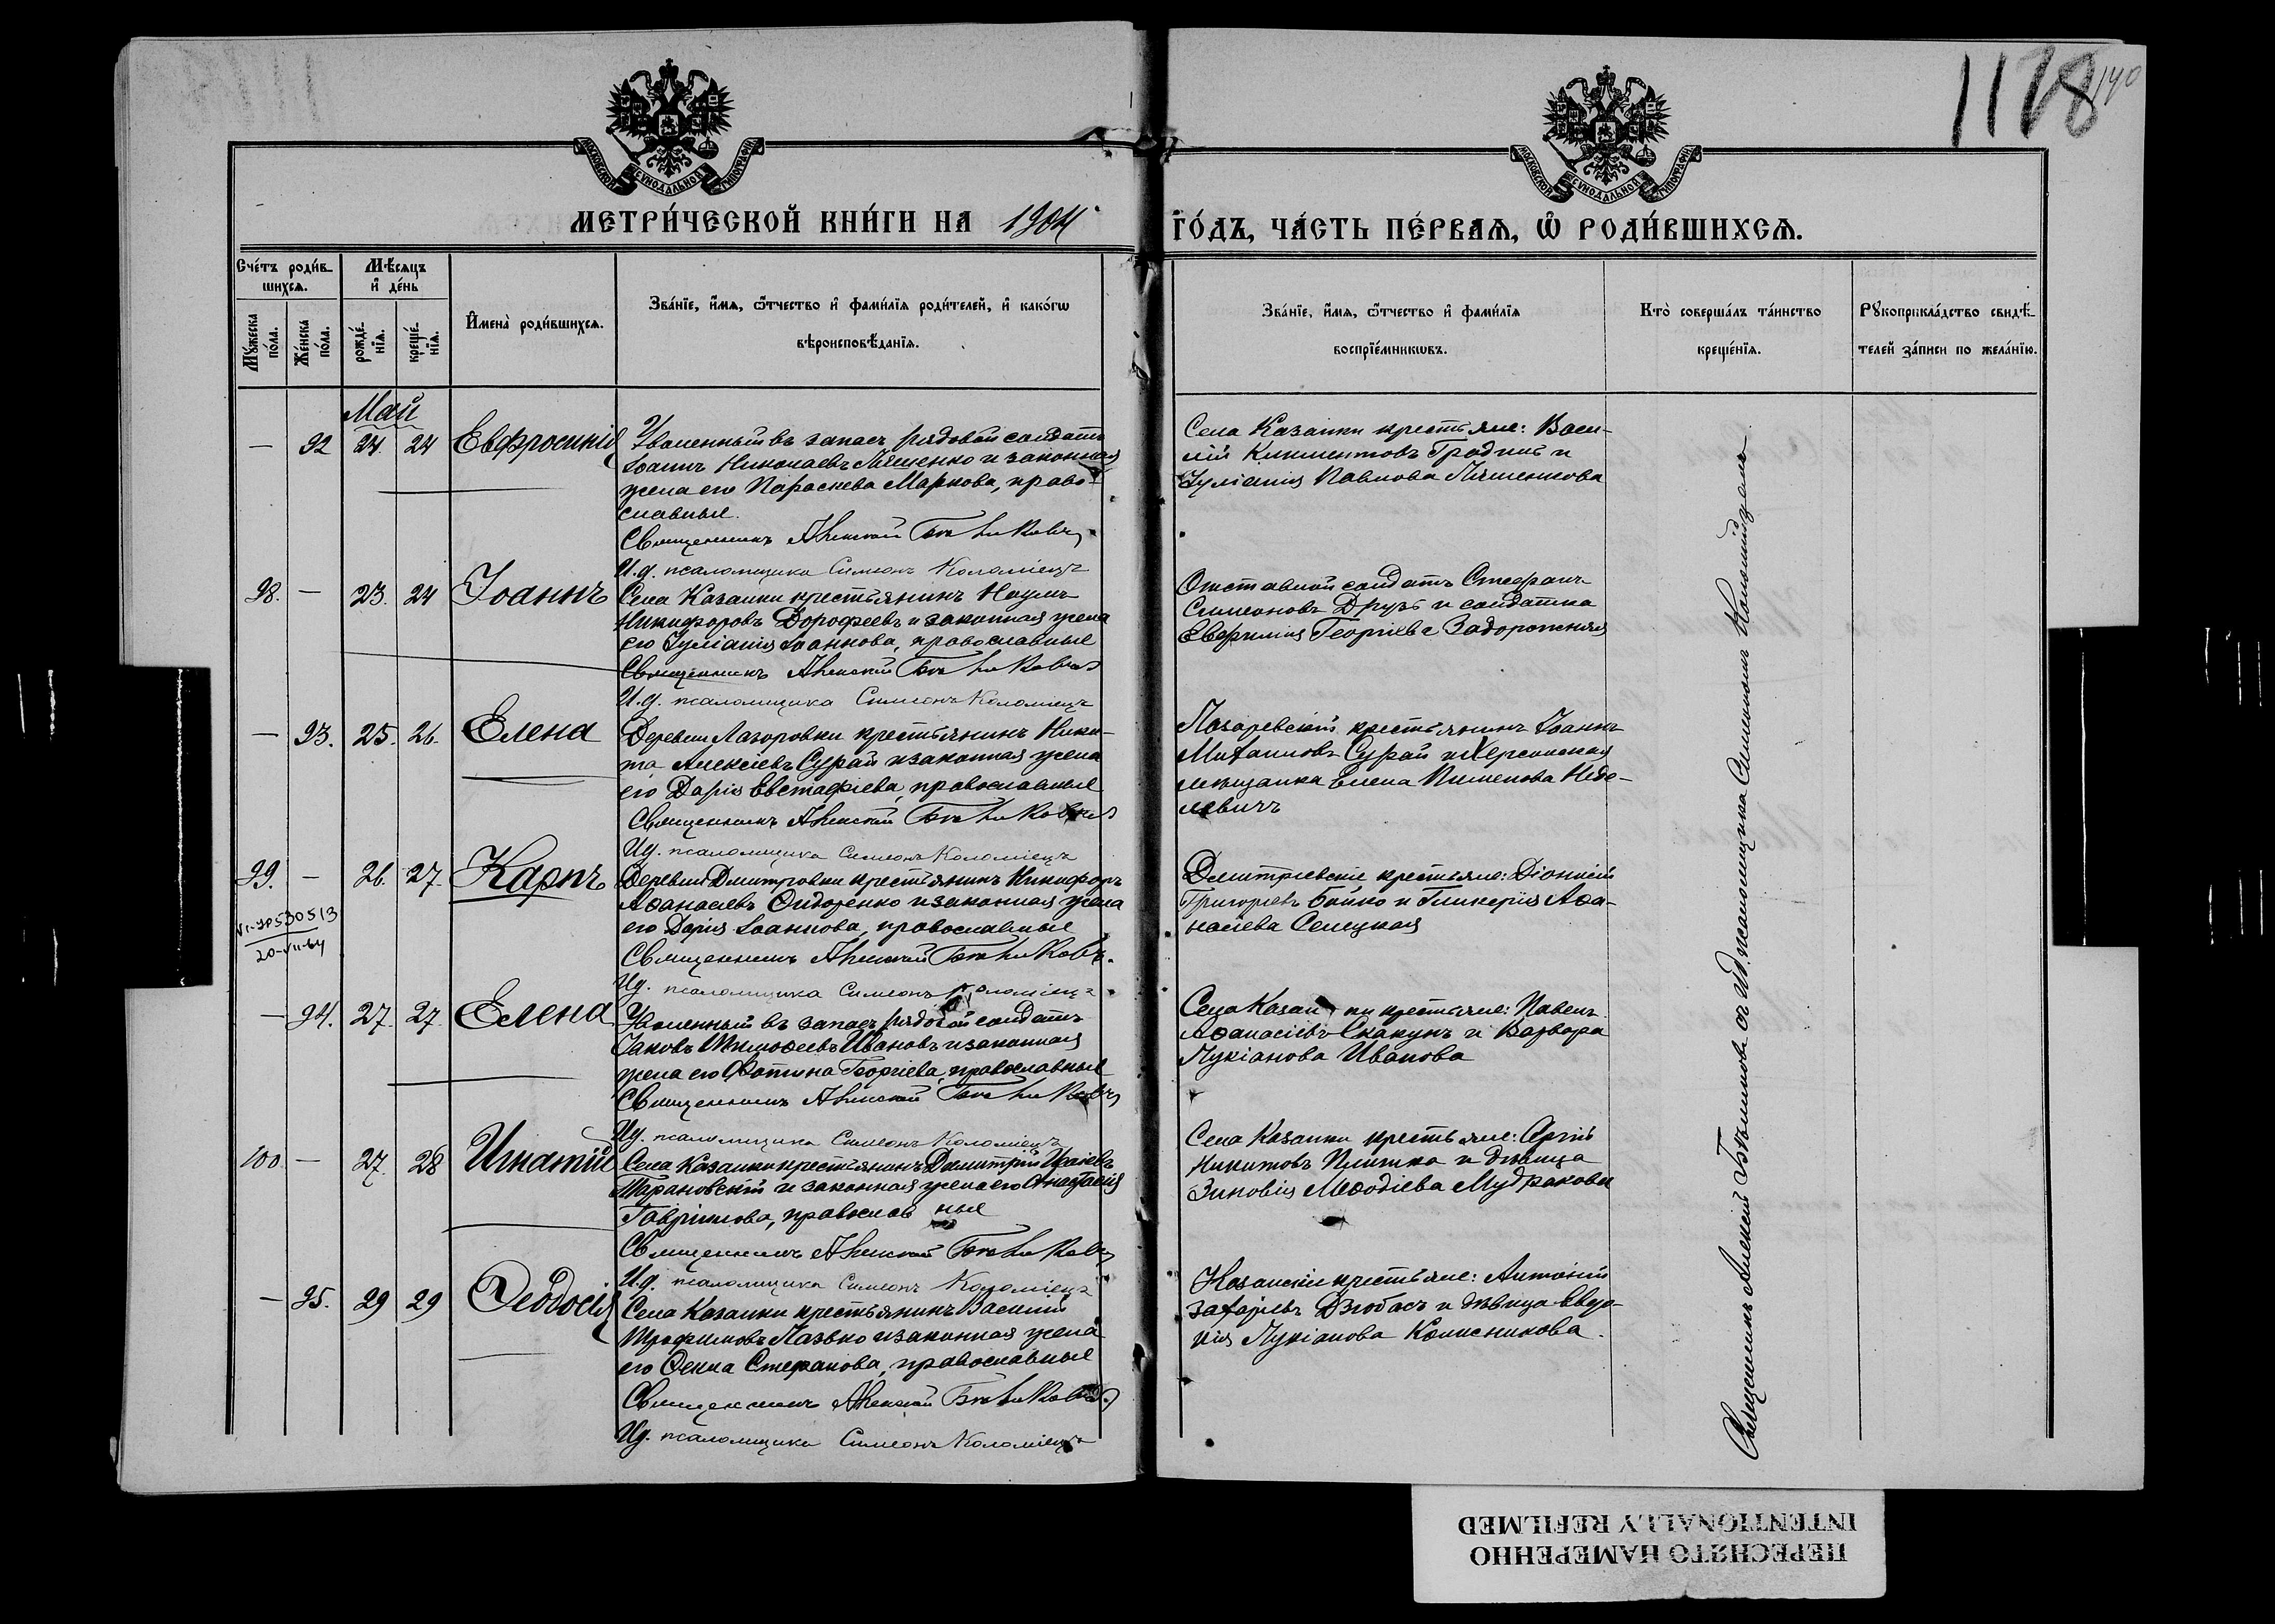 1178
140
МОСКОВСКОЙ СѴНОДАЛЬНОЙ ТИПОГРАФІИ
МОСКОВСКОЙ СѴНОДАЛЬНОЙ ТИПОГРАФІИ
МЕТРИ́ЧЕСКОЙ КНИ́ГИ НА 1904
ГО́ДЪ, ЧА́СТЬ ПЕ́РВАЯ, Ѿ РОДИ́ВШИХСЯ.
Сче́тъ роди́в-
шихся.
Мѣ́сяцъ
и де́нь
Мꙋжеска по́ла.
Же́нска по́ла.
рожде́нїя.
креще́нїя.
И҆мена̀ роди́вшихся.
Зва́нїе, и҆́мя, ѻ҆́тчество и҆ фами́лїя роди́телей, и҆ како́гѡ
вѣроисповѣ́данїя.
Зва́нїе, и҆́мя, ѻ҆́тчество и҆ фами́лїя
воспрїе́мникѡвъ.
Кто̀ соверша́лъ та́инство
креще́нїя.
Рꙋкоприкла́дство свидѣ́-
телей за́писи по жела́нїю.
Май
— 92 24. 24 Евфросинія
Уволенный въ запасъ рядовой солдатъ
Іоаннъ Николаевъ Ляшенко и законная
жена его Параскева Маркова, право-
славные.
Священникъ Алексій Бѣликовъ
И.д. псаломщика Симеонъ Коломіецъ
Села Казанки крестьяне: Васи-
лій Климентовъ Гродній и
Іуліанія Павлова Ляшенкова
98. — 23. 24 Іоаннъ
Села Казанки крестьянинъ Наумъ
Никифоровъ Дорофеевъ и законная жена
его Іуліанія Іоаннова, православные
Священникъ Алексій Бѣликовъ
И.д. псаломщика Симеонъ Коломіецъ
Отставной солдатъ Стефанъ
Симеоновъ Друзь и солдатка
Евфимія Георгіева Задорожняя
— 93. 25. 26. Елена
Деревни Лазоровки крестьянинъ Ники-
та Алексіевъ Сурай и законная жена
его Дарія Евстафіева, православные
Священникъ Алексій Бѣликовъ
И.д. псаломщика Симеонъ Коломіецъ
Лазаревскій крестьянинъ Іоаннъ
Михаиловъ Сурай и Херсонская
мѣщанка Елена Пименова Неде-
левичъ
99. — 26. 27. Карпъ
VI-ЯР530513
20-VII-64
Деревни Дмитровки крестьянинъ Никифоръ
Аѳанасіевъ Сидоренко и законная жена
его Дарія Іоаннова, православные
Священникъ Алексій Бѣликовъ.
И.д. псаломщика Симеонъ Коломіецъ
Дмитріевскіе крестьяне: Діонисій
Григоріевъ Бойко и Гликерія Аѳа-
насіева Селецкая
— 94. 27. 27. Елена
Уволенный въ запасъ рядовой солдатъ
Іаковъ Тимоѳеевъ Ивановъ и законная
жена его Фотина Георгіева, православные
Священникъ Алексій Бѣликовъ
И.д. псаломщика Симеонъ Коломіецъ
Села Казанки крестьяне: Павелъ
Аѳанасіевъ Скакунъ и Варвара
Лукіанова Иванова
100 — 27. 28 Игнатій
Села Казанки крестьянинъ Димитрій Исаіевъ
Тарановскій и законная жена его Анастасія
Гавріилова, православные
Священникъ Алексій Бѣликовъ
И.д. псаломщика Симеонъ Коломіецъ
Села Казанки крестьяне: Сергій
Никитовъ Плитка и дѣвица
Зиновія Меѳодіева Мудракова
— 95. 29 29 Ѳеодосія
Села Казанки крестьянинъ Василій
Трофимовъ Лазько и законная жена
его Ѳекла Стефанова, православные
Священникъ Алексій Бѣликовъ
И.д. псаломщика Симеонъ Коломіецъ
Казанскіе крестьяне: Антоній
Захаріевъ Дзюбасъ и дѣвица Евдо-
кія Лукіанова Колисникова.
Священникъ Алексій Бѣликовъ съ И.д. псаломщика Симеономъ Коломійцемъ
ПЕРЕСНЯТО НАМЕРЕННО
INTENTIONALLY REFILMED